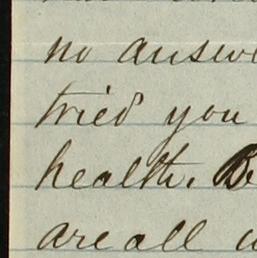 no answe
tried you
health. Be
are all